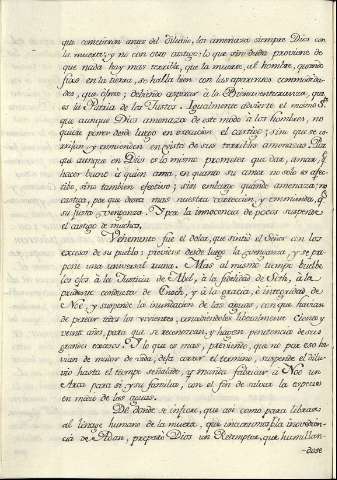 que cometieron antes del Diluvio, los amenaza siempre Dios con
la muerte; y no con otro castigo; lo que sin duda proviene de
que nada hay mas terrible, que la muerte, al hombre, quando
fixo en la tierra, se halla bien con las aparentes commodida-
des, que ofrece; debiendo aspirar à la Bienaventuranza, que
es la Patria de los Justos. Igualmente advierte el mismo Sto
que aunque Dios amenaza de este modo à los hombres, no
quiere poner desde luego en execucion el castigo; sino que se co-
rrijan y enmienden en vista de sus terribles amenazas. Por
qué aunque en Dios es lo mismo prometer que dar, amar, y
hacer bueno à quien ama, en quanto su amor no solo es afec-
tivo, sino tambien efectivo; sin embargo quando amenaza no
castiga, por que desea mas nuestra correccion, y enmienda, q
su justa venganza. Y por la innocencia de pocos suspende
el castigo de muchos.
Vehemente fue el dolor, que sintió el Señor con los
excesos de su pueblo; previene desde luego la venganza, y se pro-
pone una universal ruina. Mas al mismo tiempo buelbe
los ojos à la Justicia de Abel, à la fidelidad de Seth, à la
prudente conducta de Enoch, y à la gracia, è integridad de
Noé, y suspende la inundacion de las aguas, con que havian
de perecer todos los vivientes, concediendoles liberalmente ciento y
veinte años, para que se reconozcan, y hagan penitencia de sus
grandes excesos. Y lo que es mas, previendo, que no por eso ha-
vian de mudar de vida, deja correr el termino, suspende el dilu-
vio hasta el tiempo señalado, y manda fabricar à Noé un
Arca para sí, y su familia, con el fin de salvar la especie
en medio de las aguas.
De donde se infiere, que asi como para librar
al linage humano de la muerte, que incurrió por la inovedien-
cia de Adan, preparó Dios un Redemptor, que humillan-
-dose